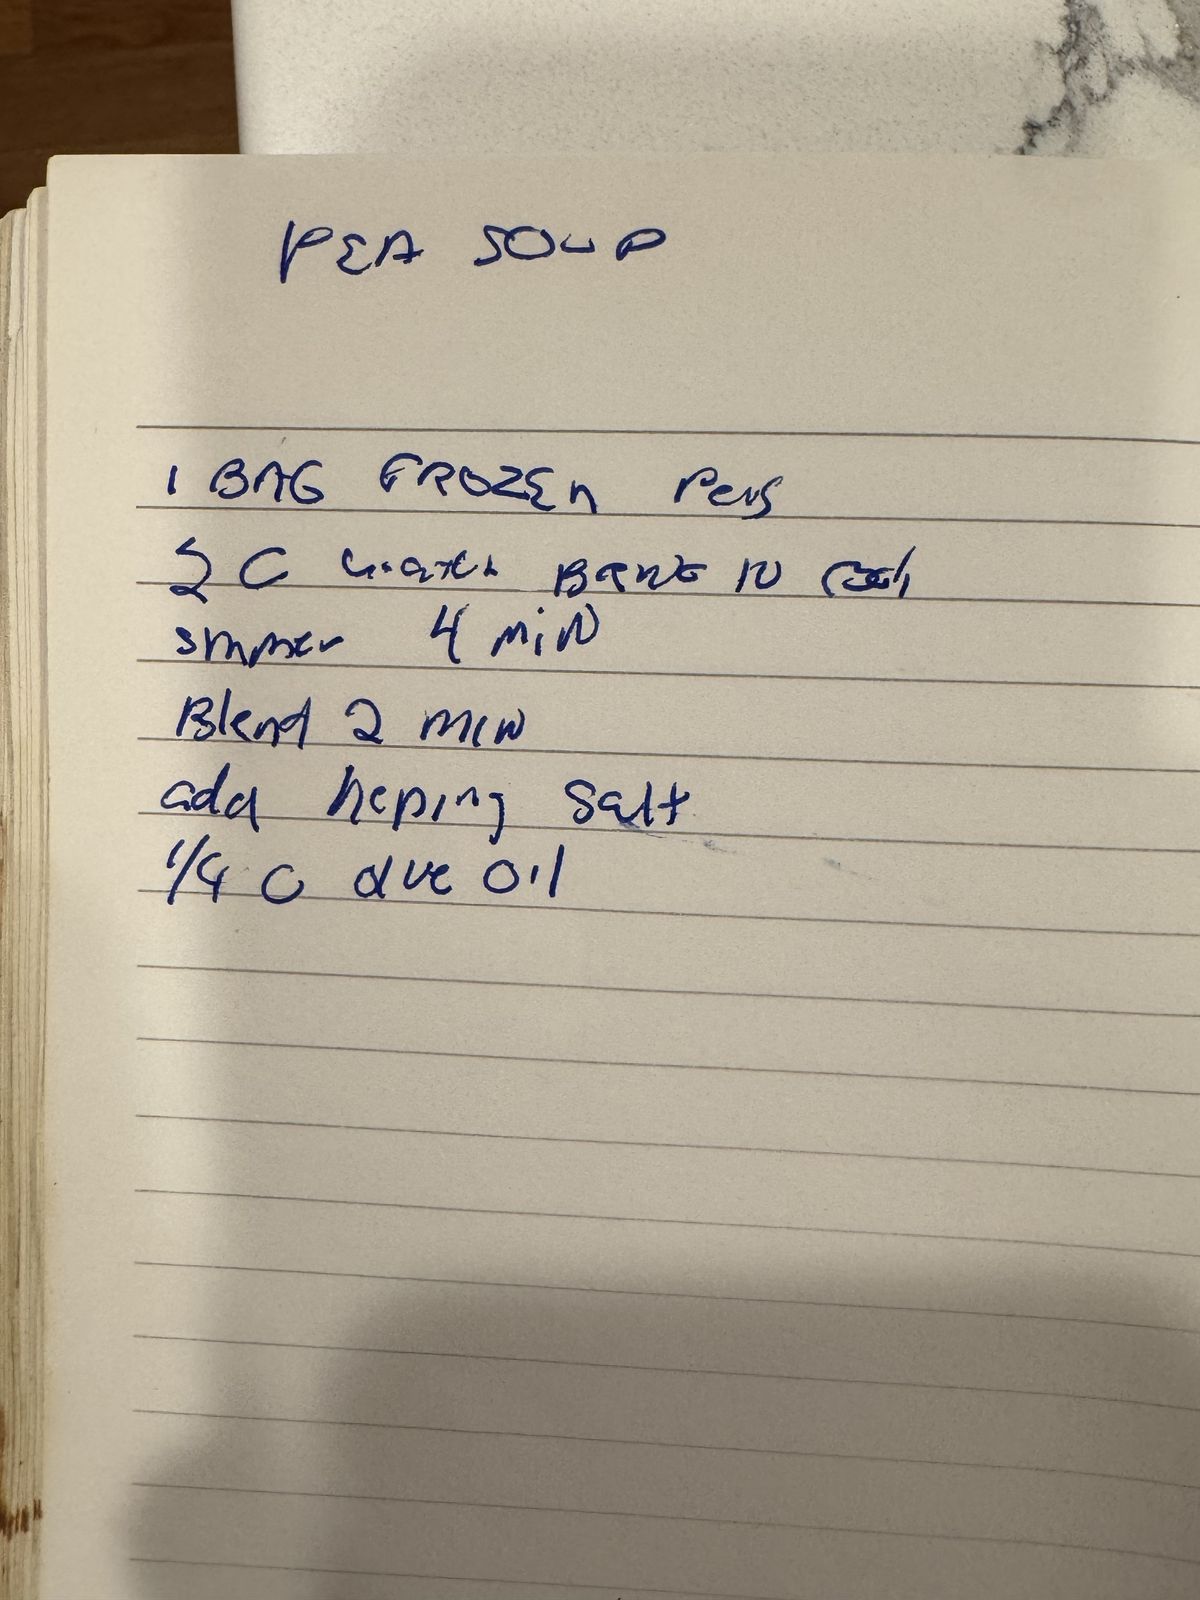 PEA SOUP
1 BAG FROZEN Peas
2 C water BRING TO
simmer 4 MiN
Blend 2 MIN
add heping Salt
1/4 C olive oil